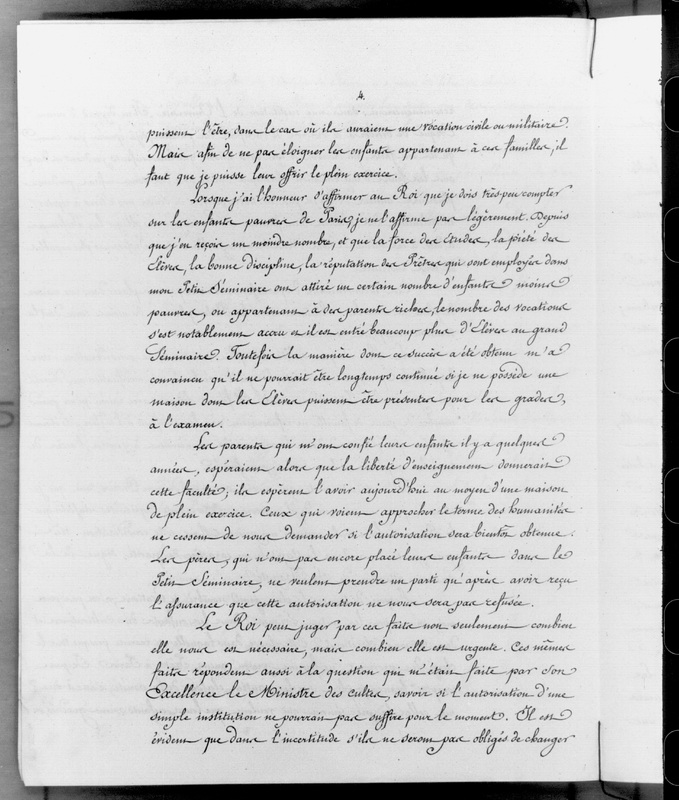 4.
puissent l'être, dans le cas où ils auraient une vocation civile ou militaire.
Mais afin de ne pas éloigner les enfants appartenant à ces familles, il
faut que je puisse leur offrir le plein exercice.
Lorsque j'ai l'honneur d'affirmer au Roi que je dois très-peu compter
sur les enfants pauvres de Paris, je ne l'affirme pas légèrement. Depuis
que j'en reçois un moindre nombre, et que la force des études, la piété des
Elèves, la bonne discipline, la réputation des Prêtres qui sont employés dans
mon Petit Séminaire ont attiré un certain nombre d'enfants moins
pauvres, ou appartenant à des parents riches, le nombre des vocations
s'est notablement accru et il est entré beaucoup plus d'Elèves au grand
Séminaire. Toutefois la manière dont ce succès a été obtenu m'a
convaincu qu'il ne pourrait être longtemps continué si je ne possède une
maison dont les Elèves puissent être présentés pour les grades,
à l'examen.
Les parents qui m'ont confié leurs enfants il y a quelques
années, espéraient alors que la liberté d'enseignement donnerait
cette faculté; ils espèrent l'avoir aujourd'hui au moyen d'une maison
de plein exercice. Ceux qui voient approcher le terme des humanités
ne cessent de nous demander si l'autorisation sera bientôt obtenue.
Les pères, qui n'ont pas encore placé leurs enfants dans le
Petit Séminaire, ne veulent prendre un parti qu'après avoir reçu
l'assurance que cette autorisation ne nous sera pas refusée.
Le Roi peut juger par ces faits non seulement combien
elle nous est nécessaire, mais combien elle est urgente. Ces mêmes
faits répondent aussi à la question qui m'était faite par Son
Excellence le Ministre des cultes, savoir si l'autorisation d'une
simple institution ne pourrait pas suffire pour le moment. Il est
évident que dans l'incertitude s'ils ne seront pas obligés de changer